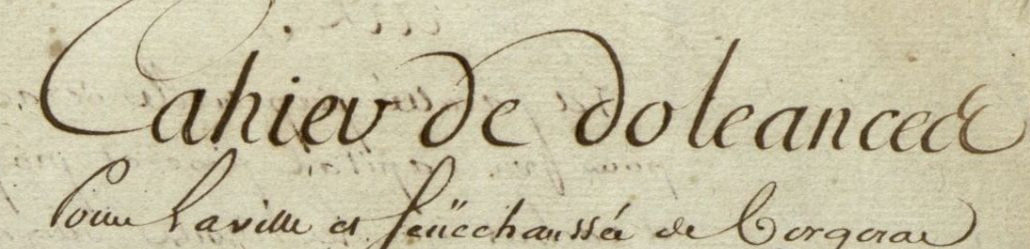 Cahier de doleances
Pour la ville et séneéchaussée de Bergerac